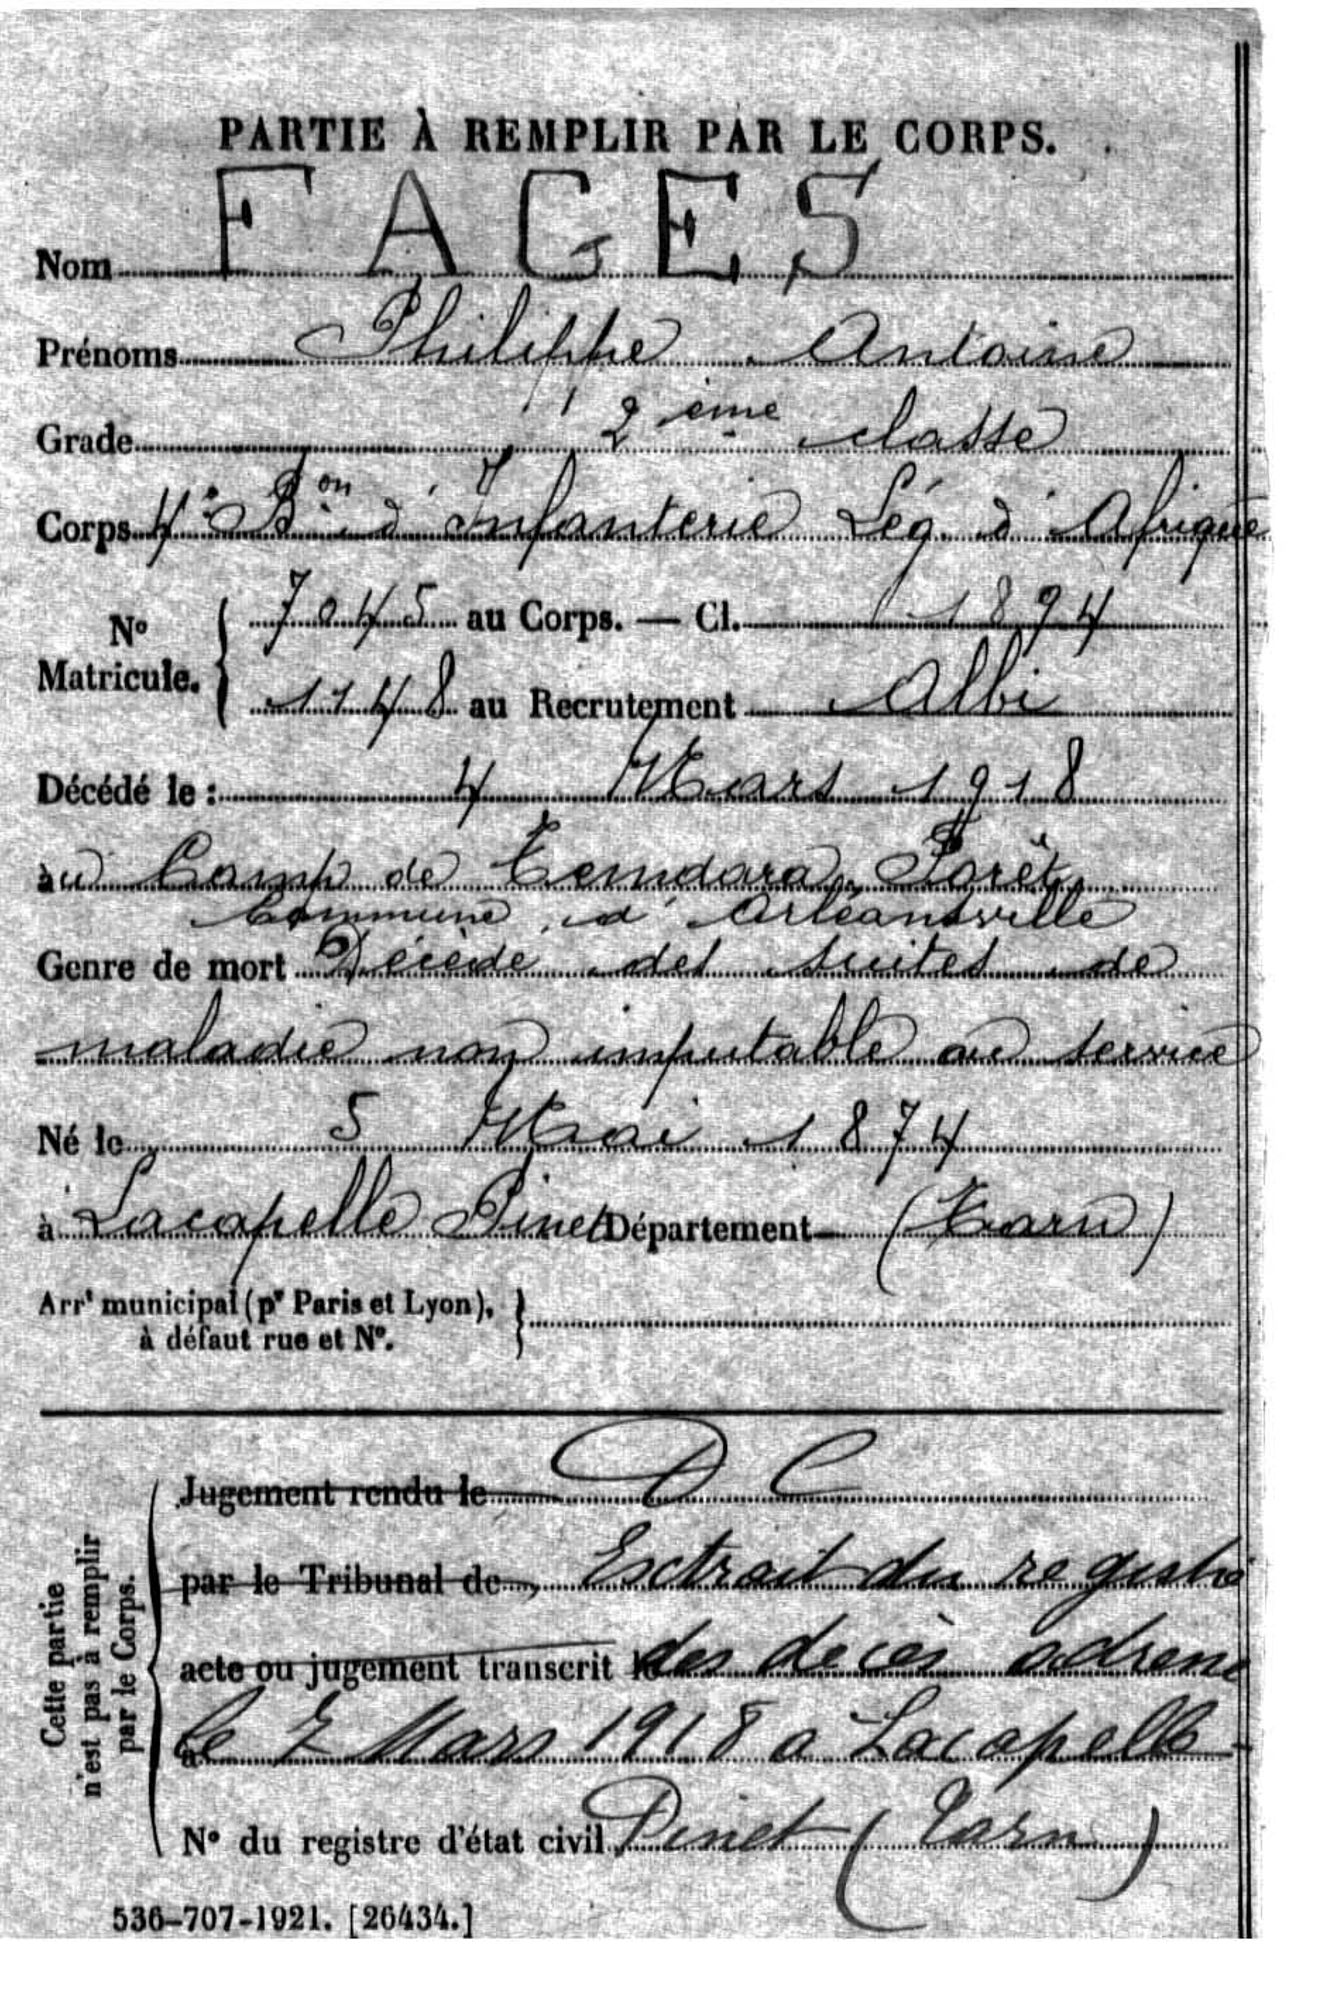 PARTIE À REMPLIR PAR LE CORPS.
Nom FAGES
Prénoms Philippe Antoine
Grade 2ème classe
Corps 4e Bon d'Infanterie Lég. d'Afrique
No Matricule. { 7045 au Corps. — Cl. 1894
1148 au Recrutement Albi
Décédé le : 4 Mars 1918
au Camp de Temdara Forêt
Commune d'Orléansville
Genre de mort Décédé des suites de
maladie non imputable au service
Né le 5 Mai 1874
à Lacapelle Pinet Département (Tarn)
Arrt municipal (pr Paris et Lyon), }
à défaut rue et No.
Cette partie
n'est pas à remplir
par le Corps.
Jugement rendu le DC
par le Tribunal de Extrait du registre
acte ou jugement transcrit le des décès
à le 7 Mars 1918 a Lacapelle-
No du registre d'état civil Pinet (Tarn)
536-707-1921. [26434.]